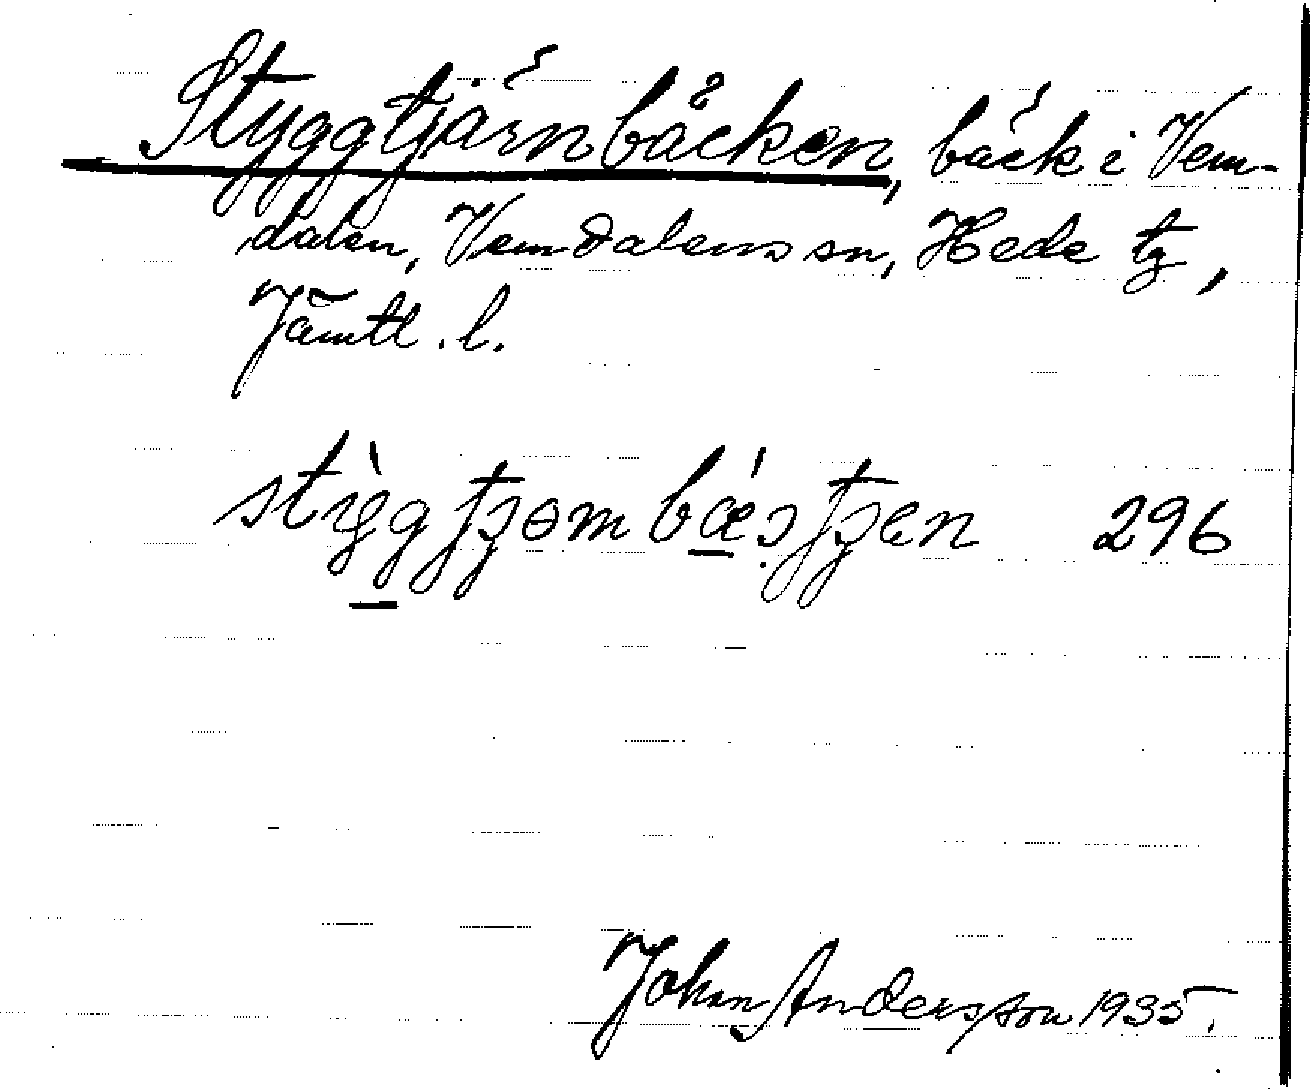 Styggtjärnbäcken, bäck i Vem-
dalen, Vemdalens sn, Hede tg,
Jämtl. l.
296
Johan Andersson 1935.